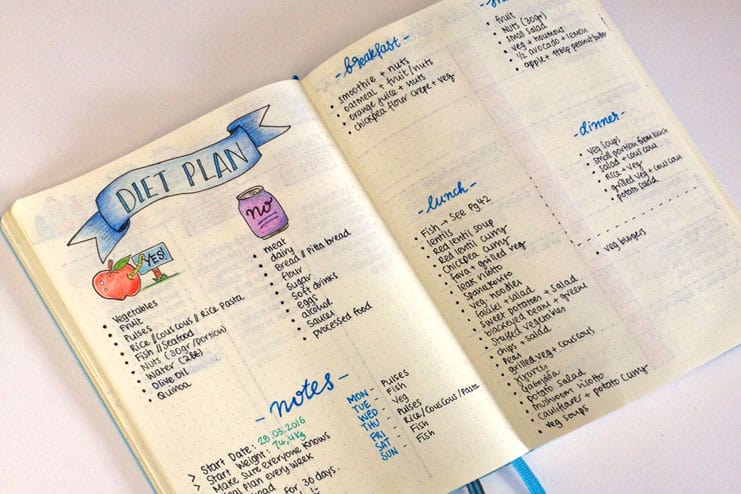 DIET PLAN
YES!
Vegetables
Fruit
Pulses
Rice // Couscous // Rice Pasta
Fish // Seafood
Nuts (30gr/portion)
Water
Olive Oil
Quinoa
no
meat
dairy
Bread // Pitta bread
flour
sugar
soft drinks
eggs
alcohol
sauces
processed food
- notes -
> Start Date: 28.03.2016
> Start Weight: 74,4kg
> Make sure everyone knows
plan every week
for 30 days.
MON - Pulses
TUE - Fish
WED - Veg
THU - Pulses
FRI - Rice/Couscous/Pasta
SAT - Fish
SUN - Fish
- breakfast -
smoothie + nuts
oatmeal + fruit/nuts
orange juice + nuts
chickpea flour crepe + veg
- lunch -
Fish → See Pg 42
lentils
red lentil soup
red lentil curry
Chickpea curry
fava + grilled veg
leek risotto
spanakorizo
veg noodles
falafel + salad
sweet potatoes + salad
blackeyed beans + greens
Stuffed vegetables
chips + salad
Peas
grilled veg + couscous
gigantes
potato salad
mushroom risotto
cauliflower + potato curry
veg soups
fruit
Nuts (30gr)
small salad
veg + houmous
1/2 avocado + lemon
apple + 1tbsp peanut butter
- dinner -
veg soups
small portion from lunch
salad + couscous
Rice + veg
grilled veg + couscous
potato salad
veg burgers